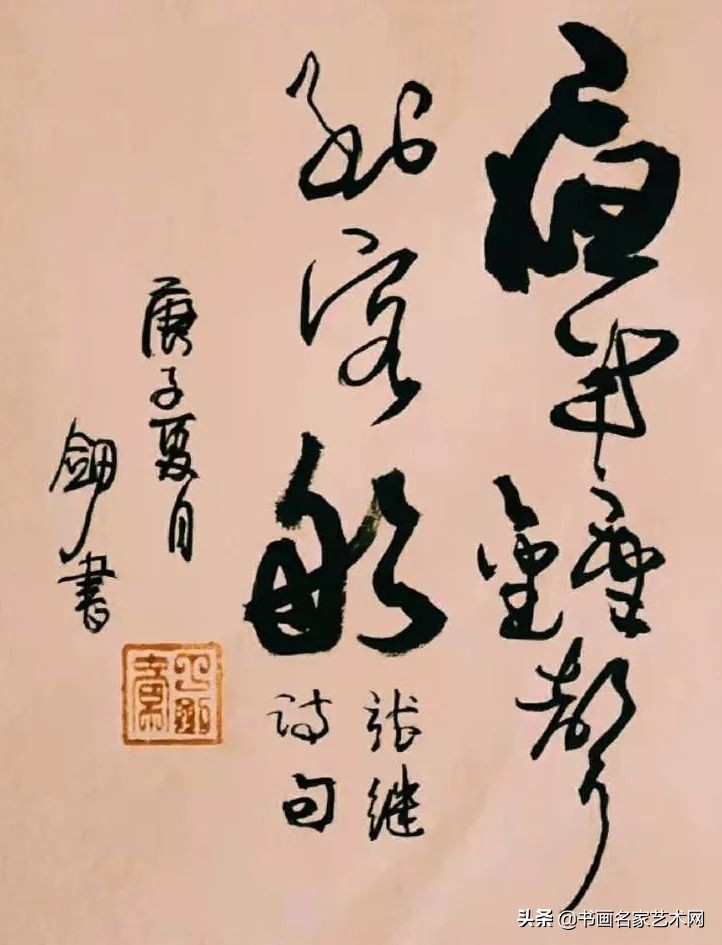 夜半鐘聲
到客船
张继
诗句
庚子夏月
劍書
头条 @书画名家艺术网